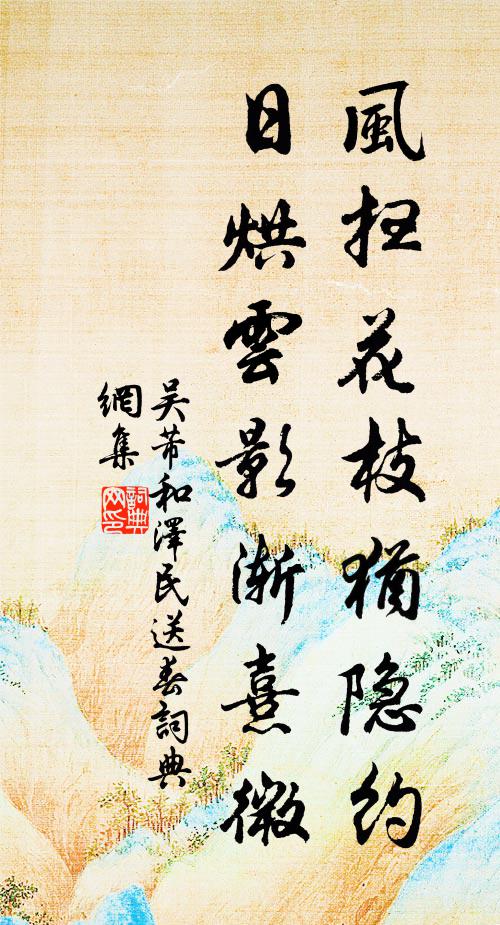 風扫花枝猶隐約
日烘雲影漸熹微
吴芾和澤民送春詞典
網集
詞典
网印